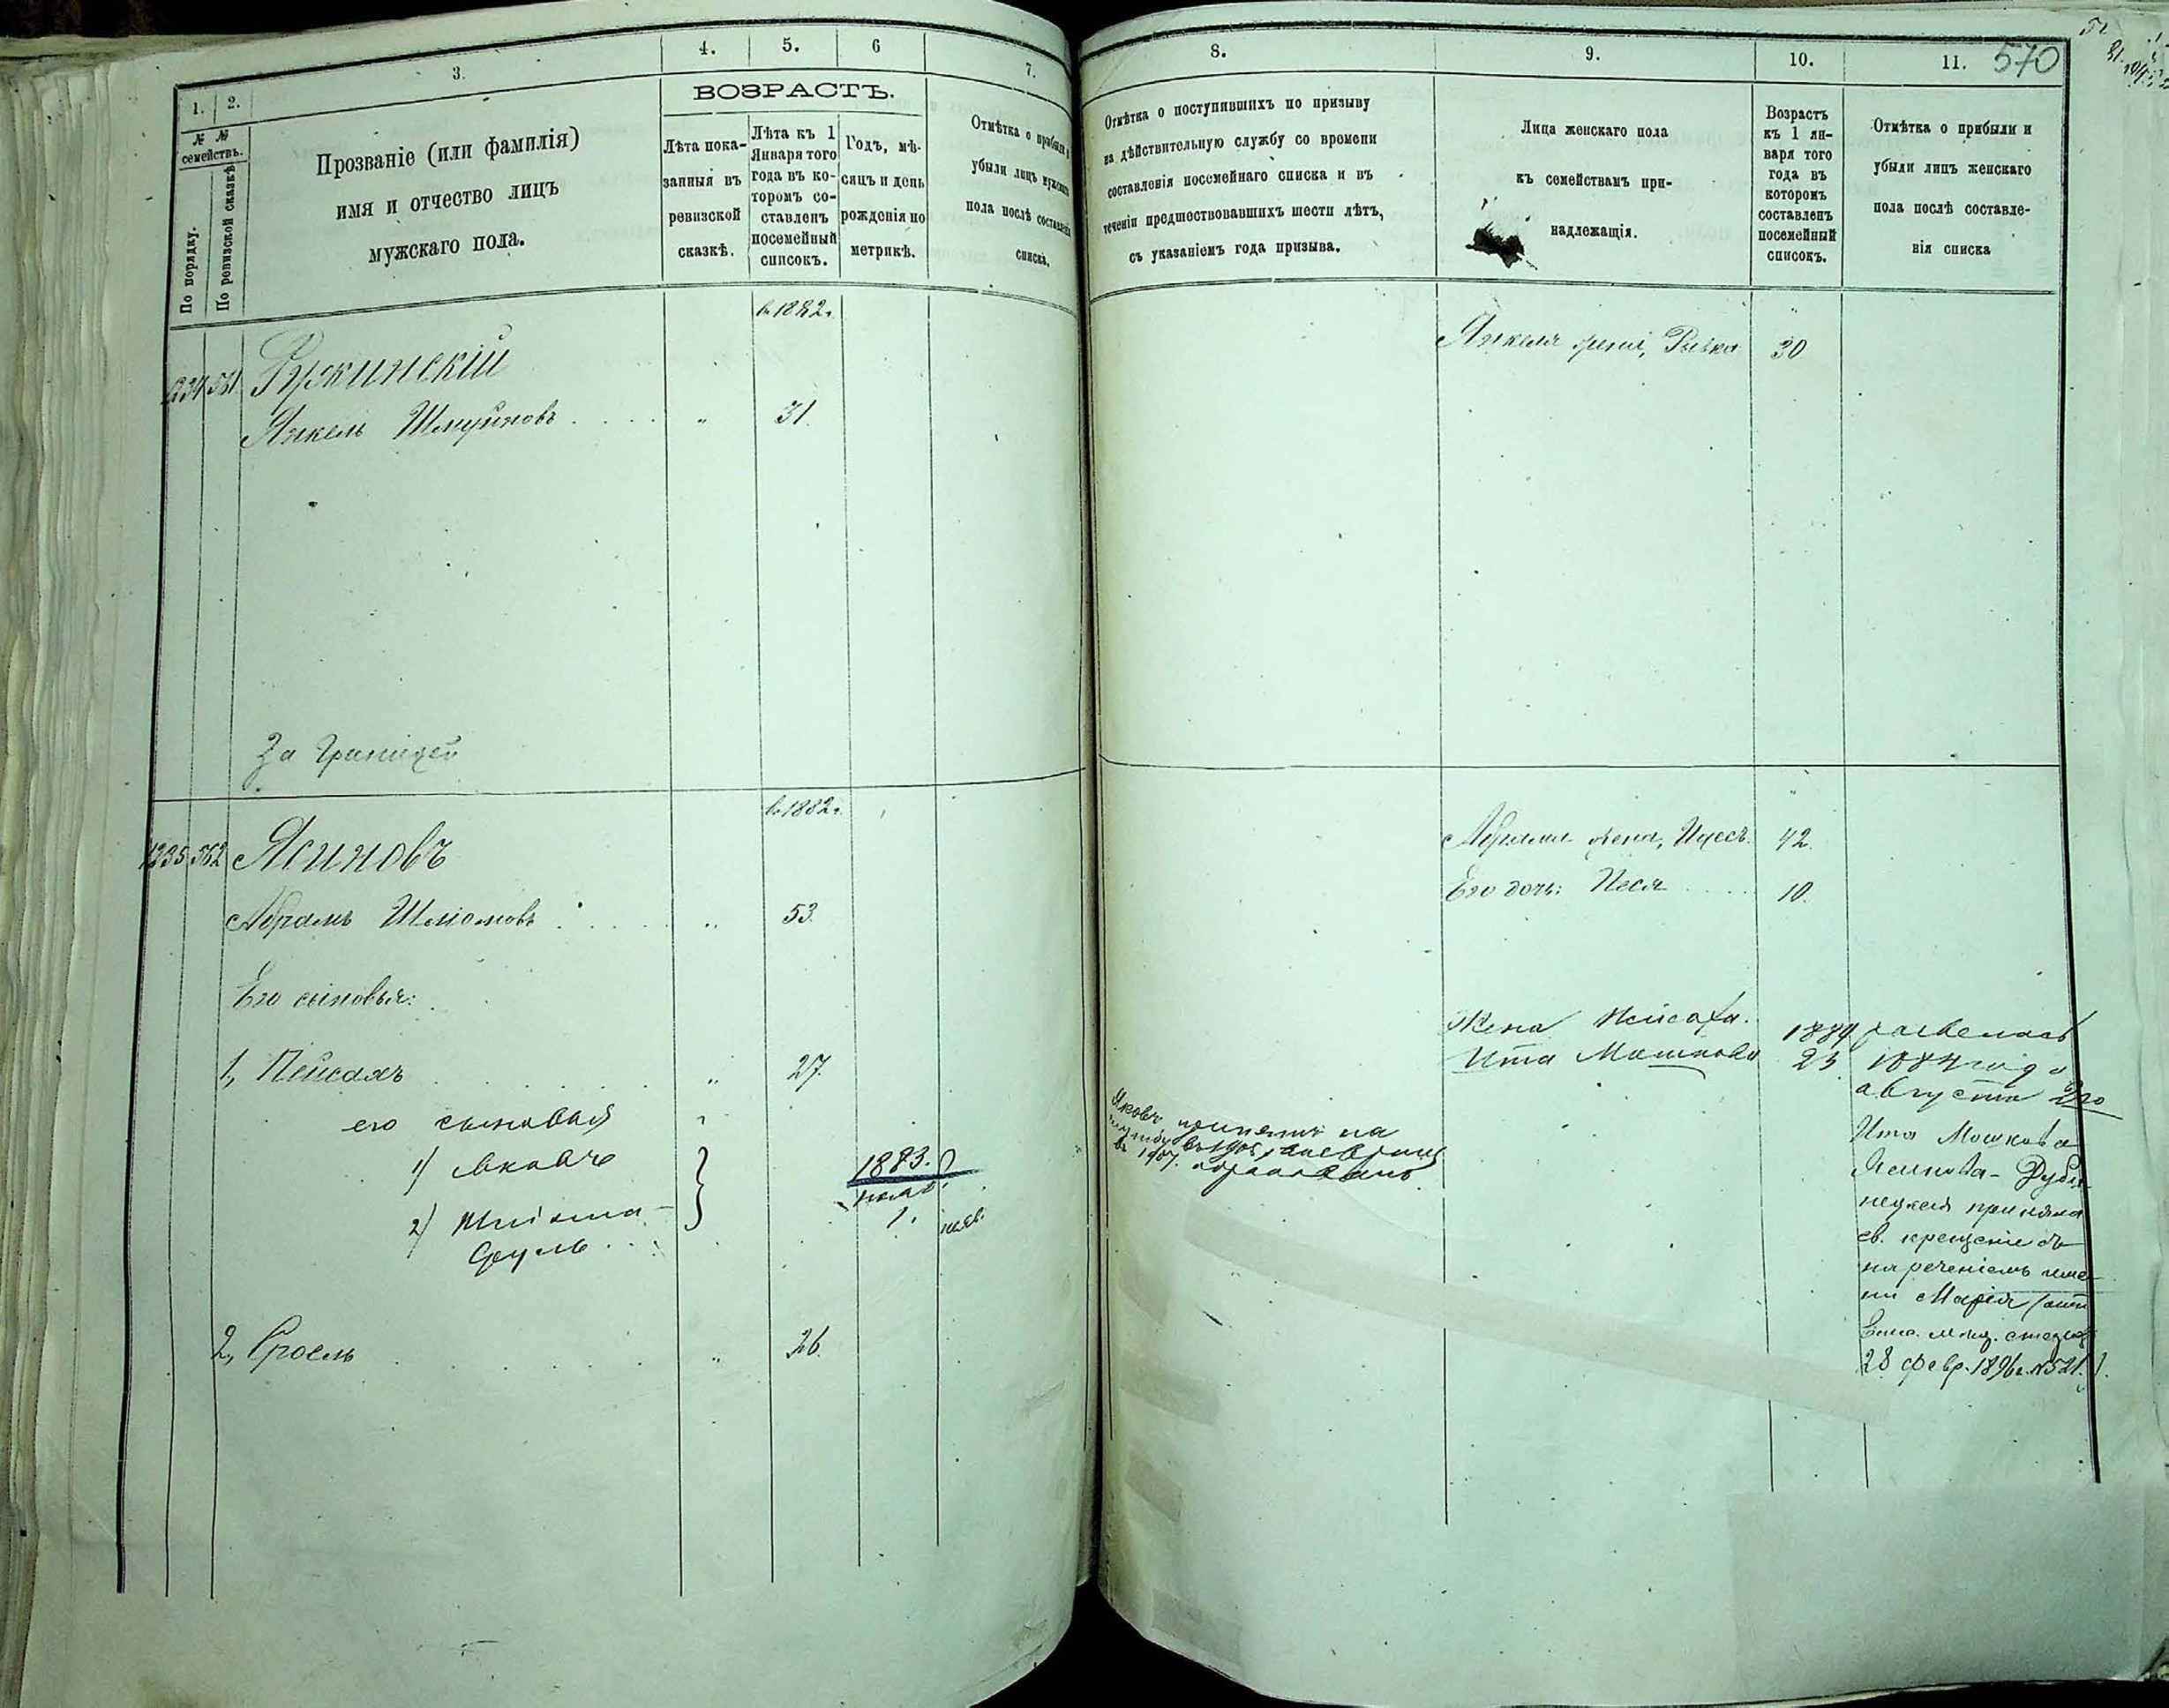 1.
2.
3.
4.
5.
6
7.
№ №
семействъ.
По порядку.
По ревизской сказкѣ
Прозваніе (или фамилія)
имя и отчество лицъ
мужскаго пола.
ВОЗРАСТЪ.
Лѣта пока-
занныя въ
ревизской
сказкѣ.
Лѣта къ 1
Января того
года въ ко-
торомъ со-
ставленъ
посемейный
списокъ.
Годъ, мѣ-
сяцъ и день
рожденія по
метрикѣ.
Отмѣтка о прибыли и
убыли лицъ мужскаго
пола послѣ составленія
списка.
в 1882 г.
1234 561 Ружинскій
Янкель Шмуйловъ . . . . " 31.
За Границей
в 1882 г.
1235 562 Ясиновъ
Абрамъ Шліомовъ . . . . " 53.
Его сыновья:
1, Пейсахъ . . . . " 27.
его сыновья "
1) Яковъ
1883.
2) Шліома-
Сруль . . .
1.
2, Сроель . . . . " 26.
8.
9.
10.
11.
570
Отмѣтка о поступившихъ по призыву
на дѣйствительную службу со времени
составленія посемейнаго списка и въ
теченіи предшествовавшихъ шести лѣтъ,
съ указаніемъ года призыва.
Лица женскаго пола
къ семействамъ при-
надлежащія.
Возрастъ
къ 1 ян-
варя того
года въ
которомъ
составленъ
посемейный
списокъ.
Отмѣтка о прибыли и
убыли лицъ женскаго
пола послѣ составле-
нія списка
Янкеля жена, Рывка 30
Абрама жена, Идесъ. 42.
Его дочь: Песя . . . . 10.
Жена Пейсаха. 1884 развелась
Ита Мошкова 23 1884 года
августа 20
Яковъ принятъ на
службу въ 1905
въ 1907.
Ита Мошкова
Ясинова-Руби-
нецкая приняла
св. крещеніе съ
нареченіемъ име-
ни Марія
28 февр. 1896 г. № 521.).